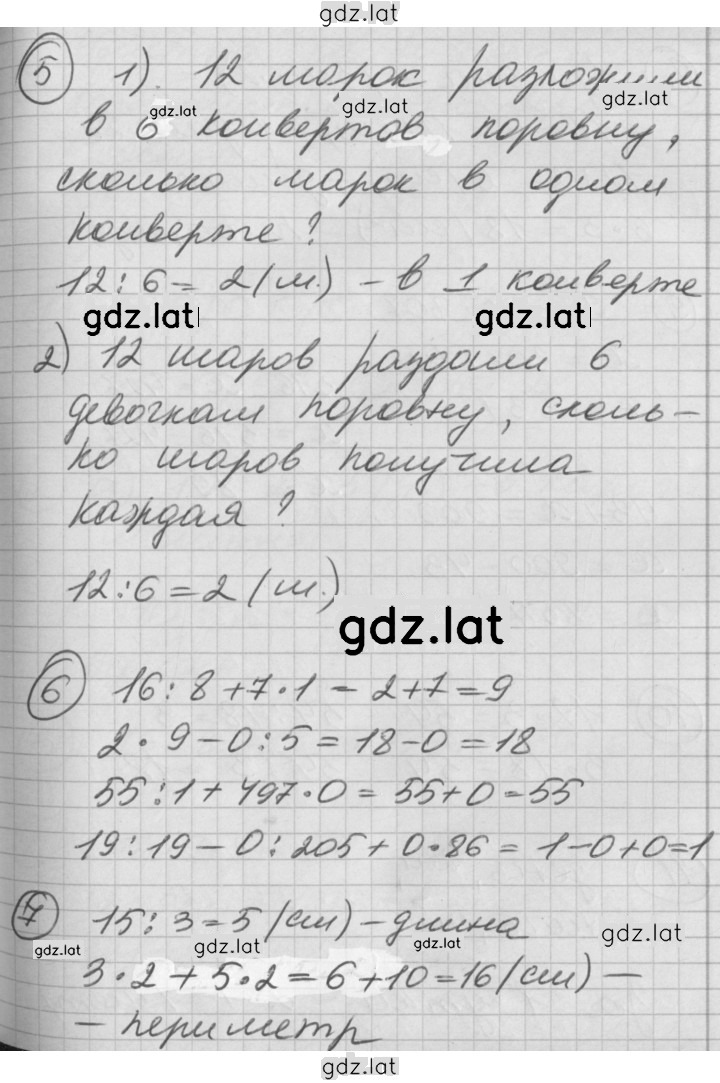 gdz.lat
5 1) 12 марок разложили
gdz.lat gdz.lat gdz.lat
в 6 конвертов поровну,
сколько марок в одном
конверте?
12:6=2(м.) – в 1 конверте
gdz.lat gdz.lat
2) 12 шаров раздали 6
девочкам поровну, сколь-
ко шаров получила
каждая?
12:6=2(ш.)
gdz.lat
6 16:8+7·1=2+7=9
2·9-0:5=18-0=18
55:1+497·0=55+0=55
19:19-0:205+0·86=1-0+0=1
7 15:3=5(см) – длина
gdz.lat gdz.lat gdz.lat gdz.lat
3·2+5·2=6+10=16(см) –
– периметр
gdz.lat